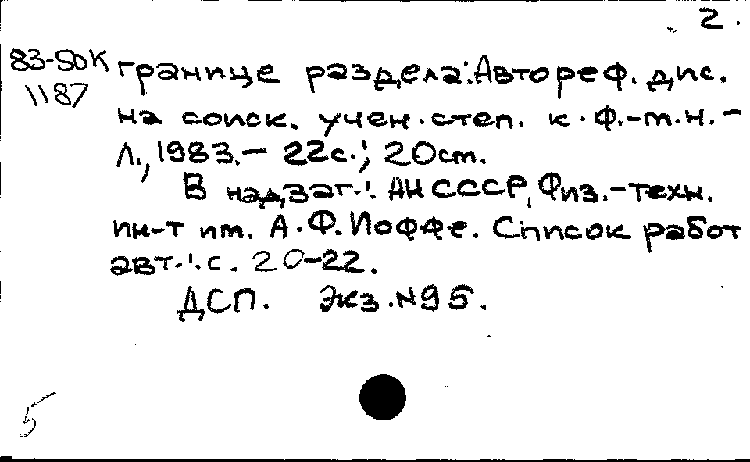 2.
83-50К границе раздела: Автореф. дис.
1187
на соиск. учен. степ. к.ф.-м.н. -
Л., 1983. - 22с.; 20см.
В надзаг.: АН СССР, Физ.-техн.
ин-т им. А.Ф. Иоффе. Список работ
авт.: с. 20-22.
ДСП. Экз. №95.
5